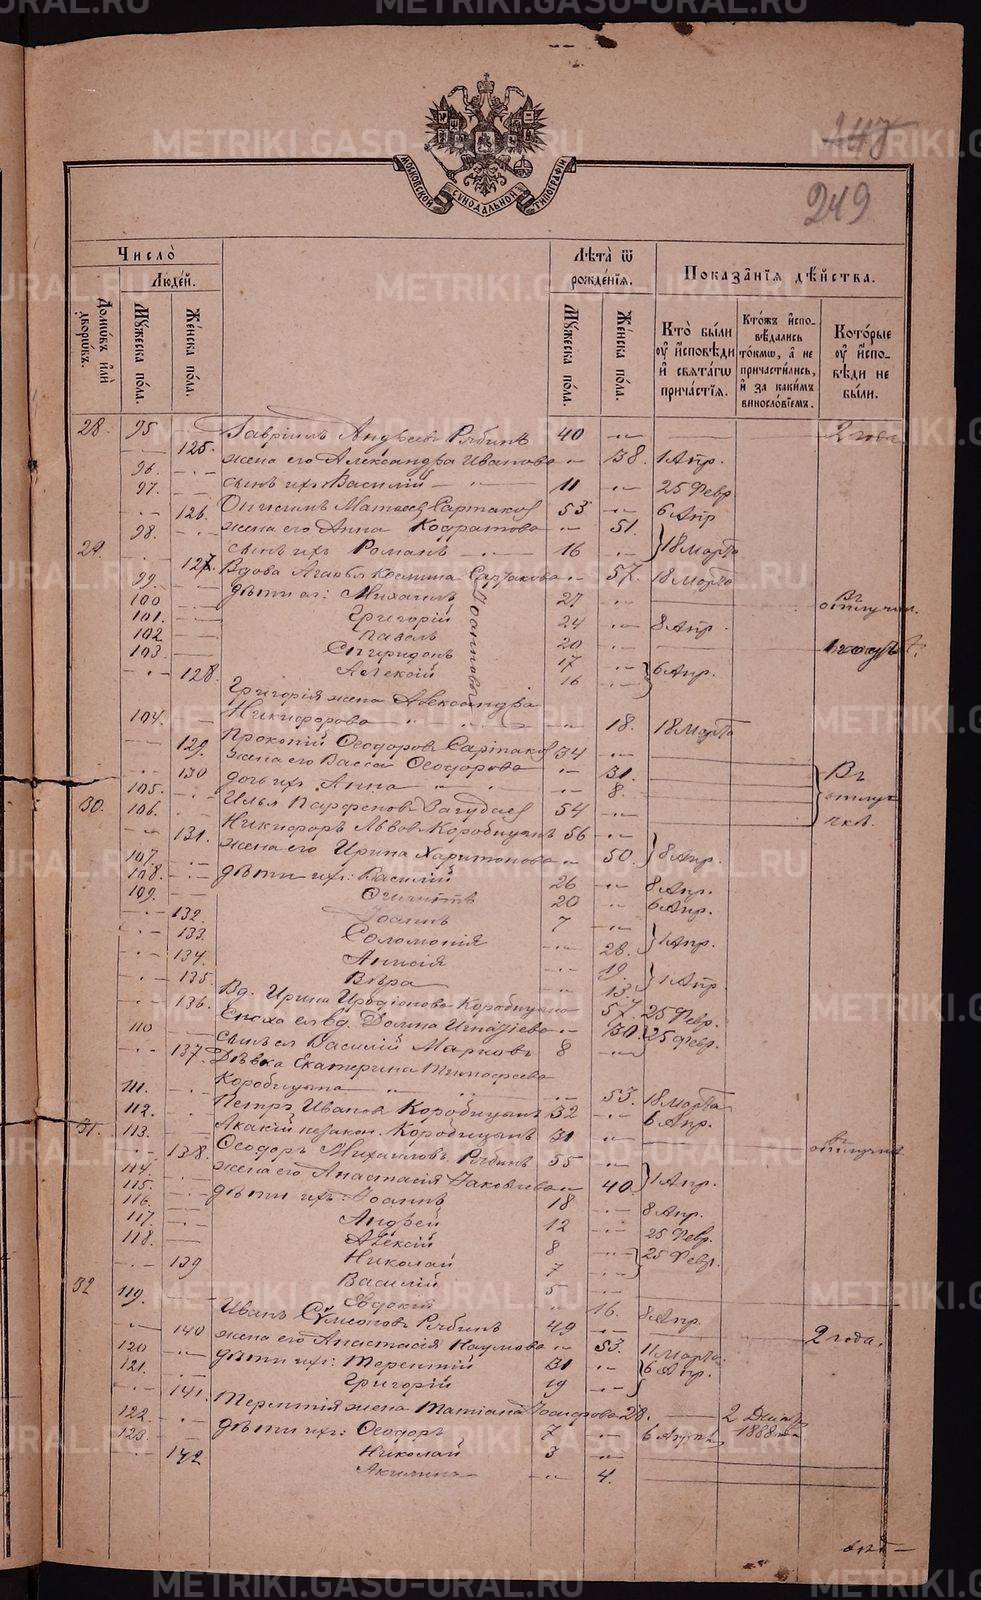 METRIKI.GASO-URAL.RU
247
249
МОСКОВСКОЙ СѴНОДАЛЬНОЙ ТИПОГРАФІИ
Число̀
Люде́й.
Домѡ́въ и҆лѝ дворѡ́въ.
Мꙋ́жеска по́ла.
Же́нска по́ла.
Лѣ́та ѿ рожде́нїѧ.
Мꙋ́жеска по́ла.
Же́нска по́ла.
Показа̑нїѧ дѣ́йства.
Кто̀ бы́ли ᲂу҆ и҆сповѣ́ди и҆ свѧта́гѡ прича́стїѧ.
Кто́жъ и҆сповѣ́дались то́кмѡ, а҆ не причасти́лись, и҆ за каки́мъ виносло́вїемъ.
Кото́рые ᲂу҆ и҆сповѣ́ди не бы́ли.
28. 95 Гавріилъ Андреевъ Рябинъ 40 2 года
125. жена его Александра Иванова 38. 1 Апр.
96. сынъ ихъ Василій 11 25 Февр
97. Онисимъ Матвѣевъ Сартаковъ 53 6 Апр
126. жена его Анна Кодратова 51.
98. сынъ ихъ Романъ 16 18 Марта
29. 127. Вдова Агаѳья Козмина Сартакова 57. 18 Марта
99. дѣти ея: Михаилъ 27 Въ отлучкѣ.
Іоанновы
100. Григорій 24 8 Апр.
101. Павелъ 20
102 Спиридонъ 17 6 Апр.
103. Алексій 16
128. Григорія жена Александра
Никифорова 18. 18 Марта
104. Прокопій Ѳеодоровъ Сартаковъ 34
129. жена его Васса Ѳеодорова 31. Въ отлучкѣ.
130 дочь ихъ Анна 8.
105. Илья Парфеновъ 54
30. 106. Никифоръ Львовъ Коробицынъ 56
131. жена его Ирина Харитонова 50. 8 Апр.
107. дѣти ихъ: Василій 26 8 Апр.
108. 20 6 Апр.
109. Іоаннъ 7
132. Соломонія 28. 1 Апр.
133. Анисія 19.
134. Вѣра 13. 1 Апр
135. Вд. Ирина Иродіонова Коробицына 57. 25 Февр.
136. Сноха ея вд. Домна Игнатіева 30. 25 Февр.
110 сынъ ея Василій Марковъ 8
137. Дѣвка Екатерина Тимофеева
Коробицына 53. 18 Марта
111. Петръ Ивановъ Коробицынъ 32 6 Апр.
112. Акакій незакон. Коробицынъ 31 въ отлучкѣ
31. 113. Ѳеодоръ Михаиловъ Рябинъ 55
138. жена его Анастасія Іаковлева 40 1 Апр.
114. дѣти ихъ: Іоаннъ 18 8 Апр.
115. Андрей 12 25 Февр.
116. Алексій 8 25 Февр.
117. Николай 7
118. Василій 5
139 Евдокія 16. 8 Апр.
32 119. Иванъ Сѵмеоновъ Рябинъ 49 2 года.
140 жена его Анастасія Наумова 53. 11 Марта
120 дѣти ихъ: Терентій 31 6 Апр.
121. Григорій 19
141. Терентія жена Татіана 28. 2 1888 года
122. дѣти ихъ: Ѳеодоръ 7 6 Апр
123. Николай 3
142 Акилина 4.